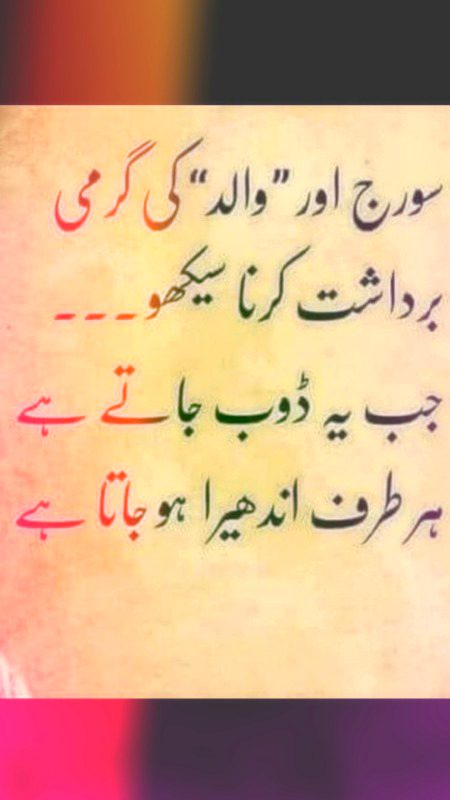 سورج اور ”والد“ کی گرمی
برداشت کرنا سیکھو۔۔۔
جب یہ ڈوب جاتے ہے
ہر طرف اندھیرا ہو جاتا ہے